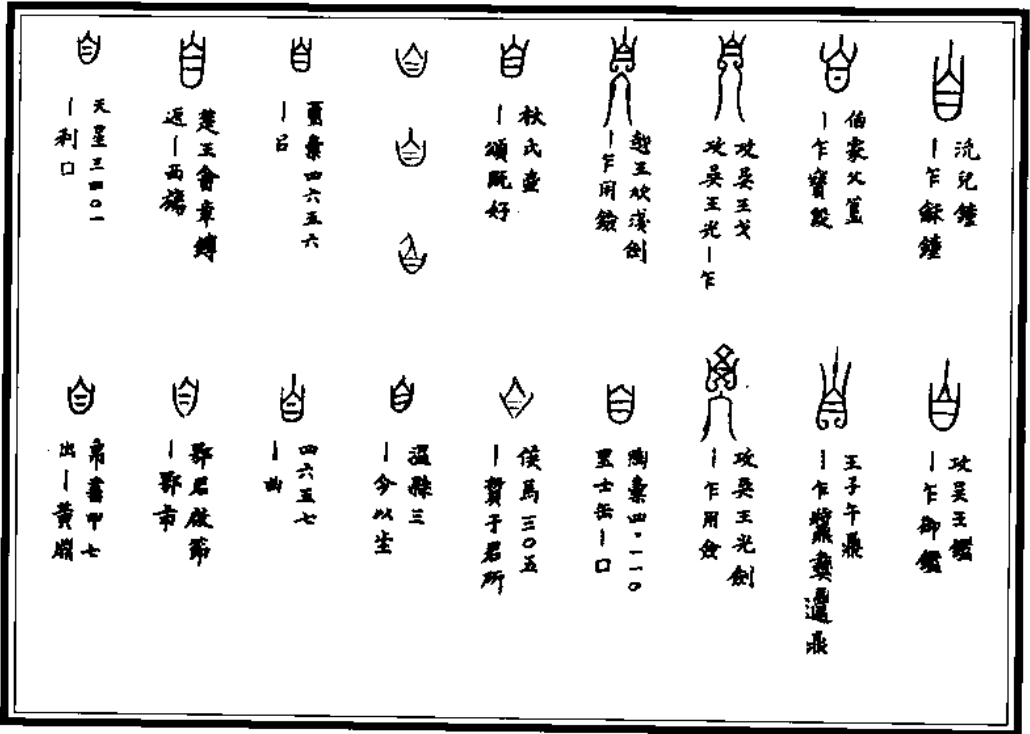 沇兒鐘
｜乍龢鐘
伯家父簋
｜乍寶𣪘
攻吳王戈
攻吳王光｜乍
越王淺劍
｜乍用鐱
杕氏壺
｜頌既好
璽彙四六五六
｜吕
楚王酓章鎛
返｜西
天星三四〇一
｜利口
攻吳王鑑
｜乍御鑑
王子午鼎
｜乍彝鼎
攻吳王光劍
｜乍用僉
陶彙四·一一〇
里士缶｜口
侯馬三〇五
｜質于君所
溫縣三
｜今以生
四六五七
｜曲
鄂君啟節
｜鄂市
帛書甲七
出｜黃淵